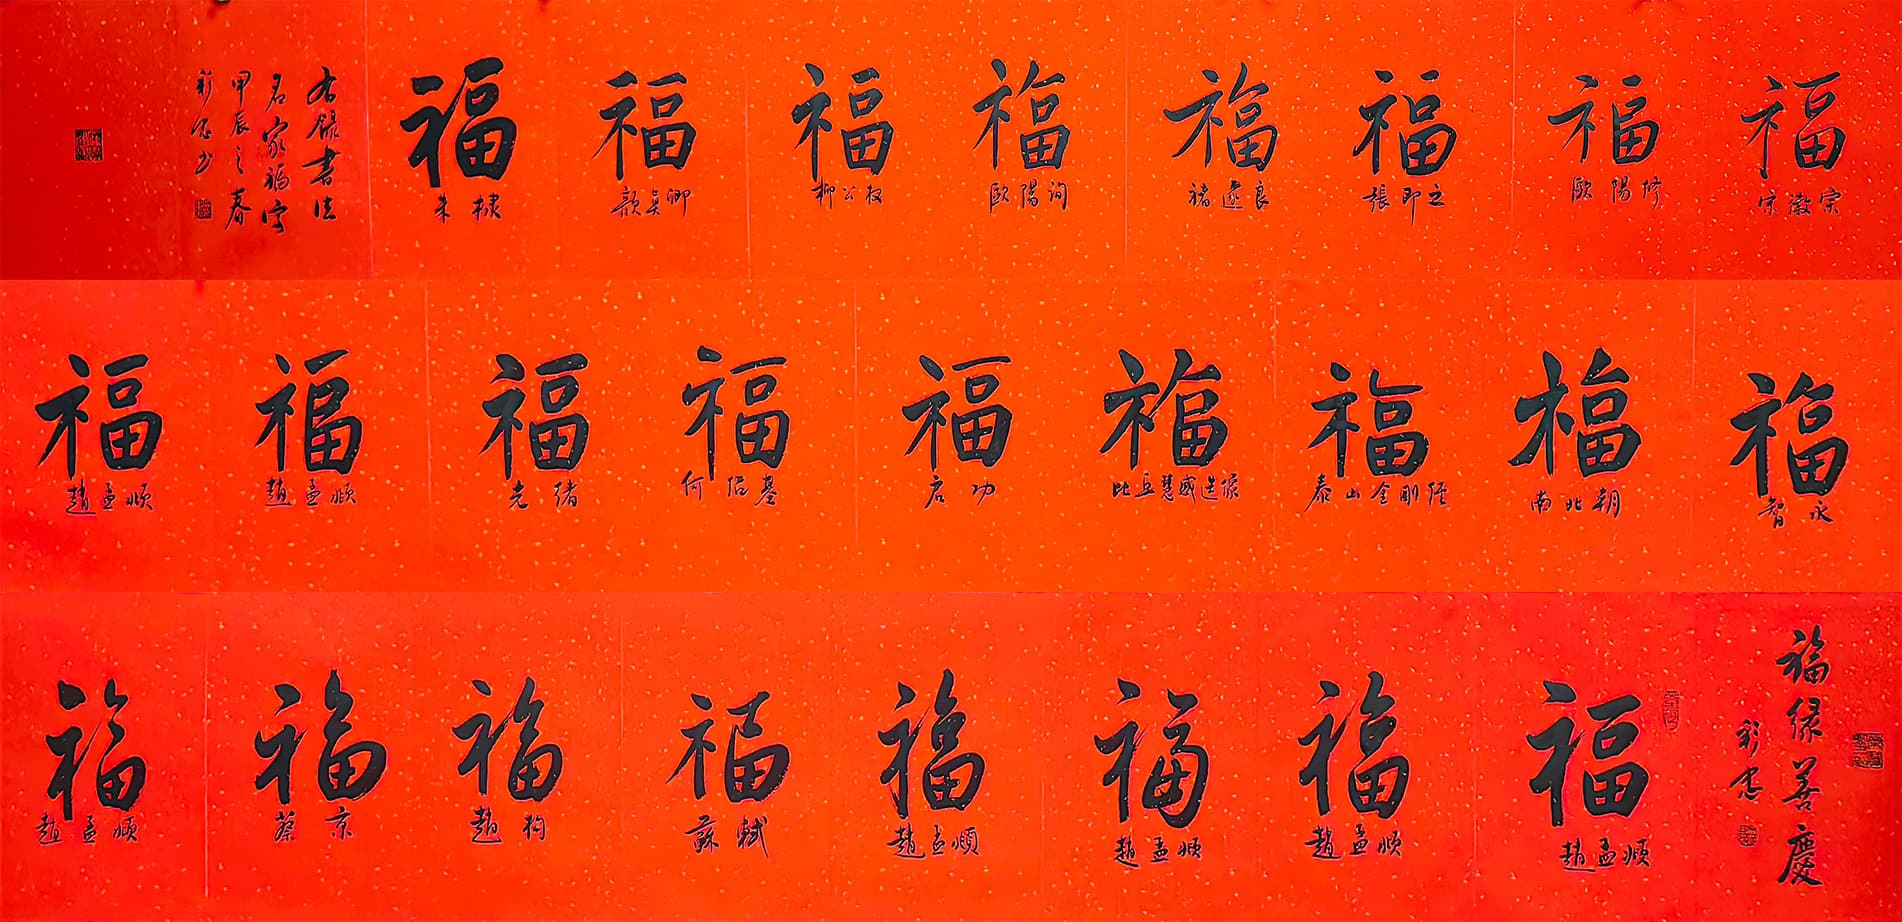 福缘善慶
彩忠
福
趙孟頫
福
趙孟頫
福
趙孟頫
福
趙孟頫
福
蘇軾
福
趙构
福
蔡京
福
趙孟頫
福
智永
福
南北朝
福
泰山金剛经
福
比丘慧感造像
福
启功
福
何绍基
福
光绪
福
趙孟頫
福
趙孟頫
福
宋徽宗
福
歐陽修
福
張即之
福
褚遂良
福
歐陽詢
福
柳公权
福
顏真卿
福
朱棣
右錄書法
名家福字
甲辰之春
彩忠书